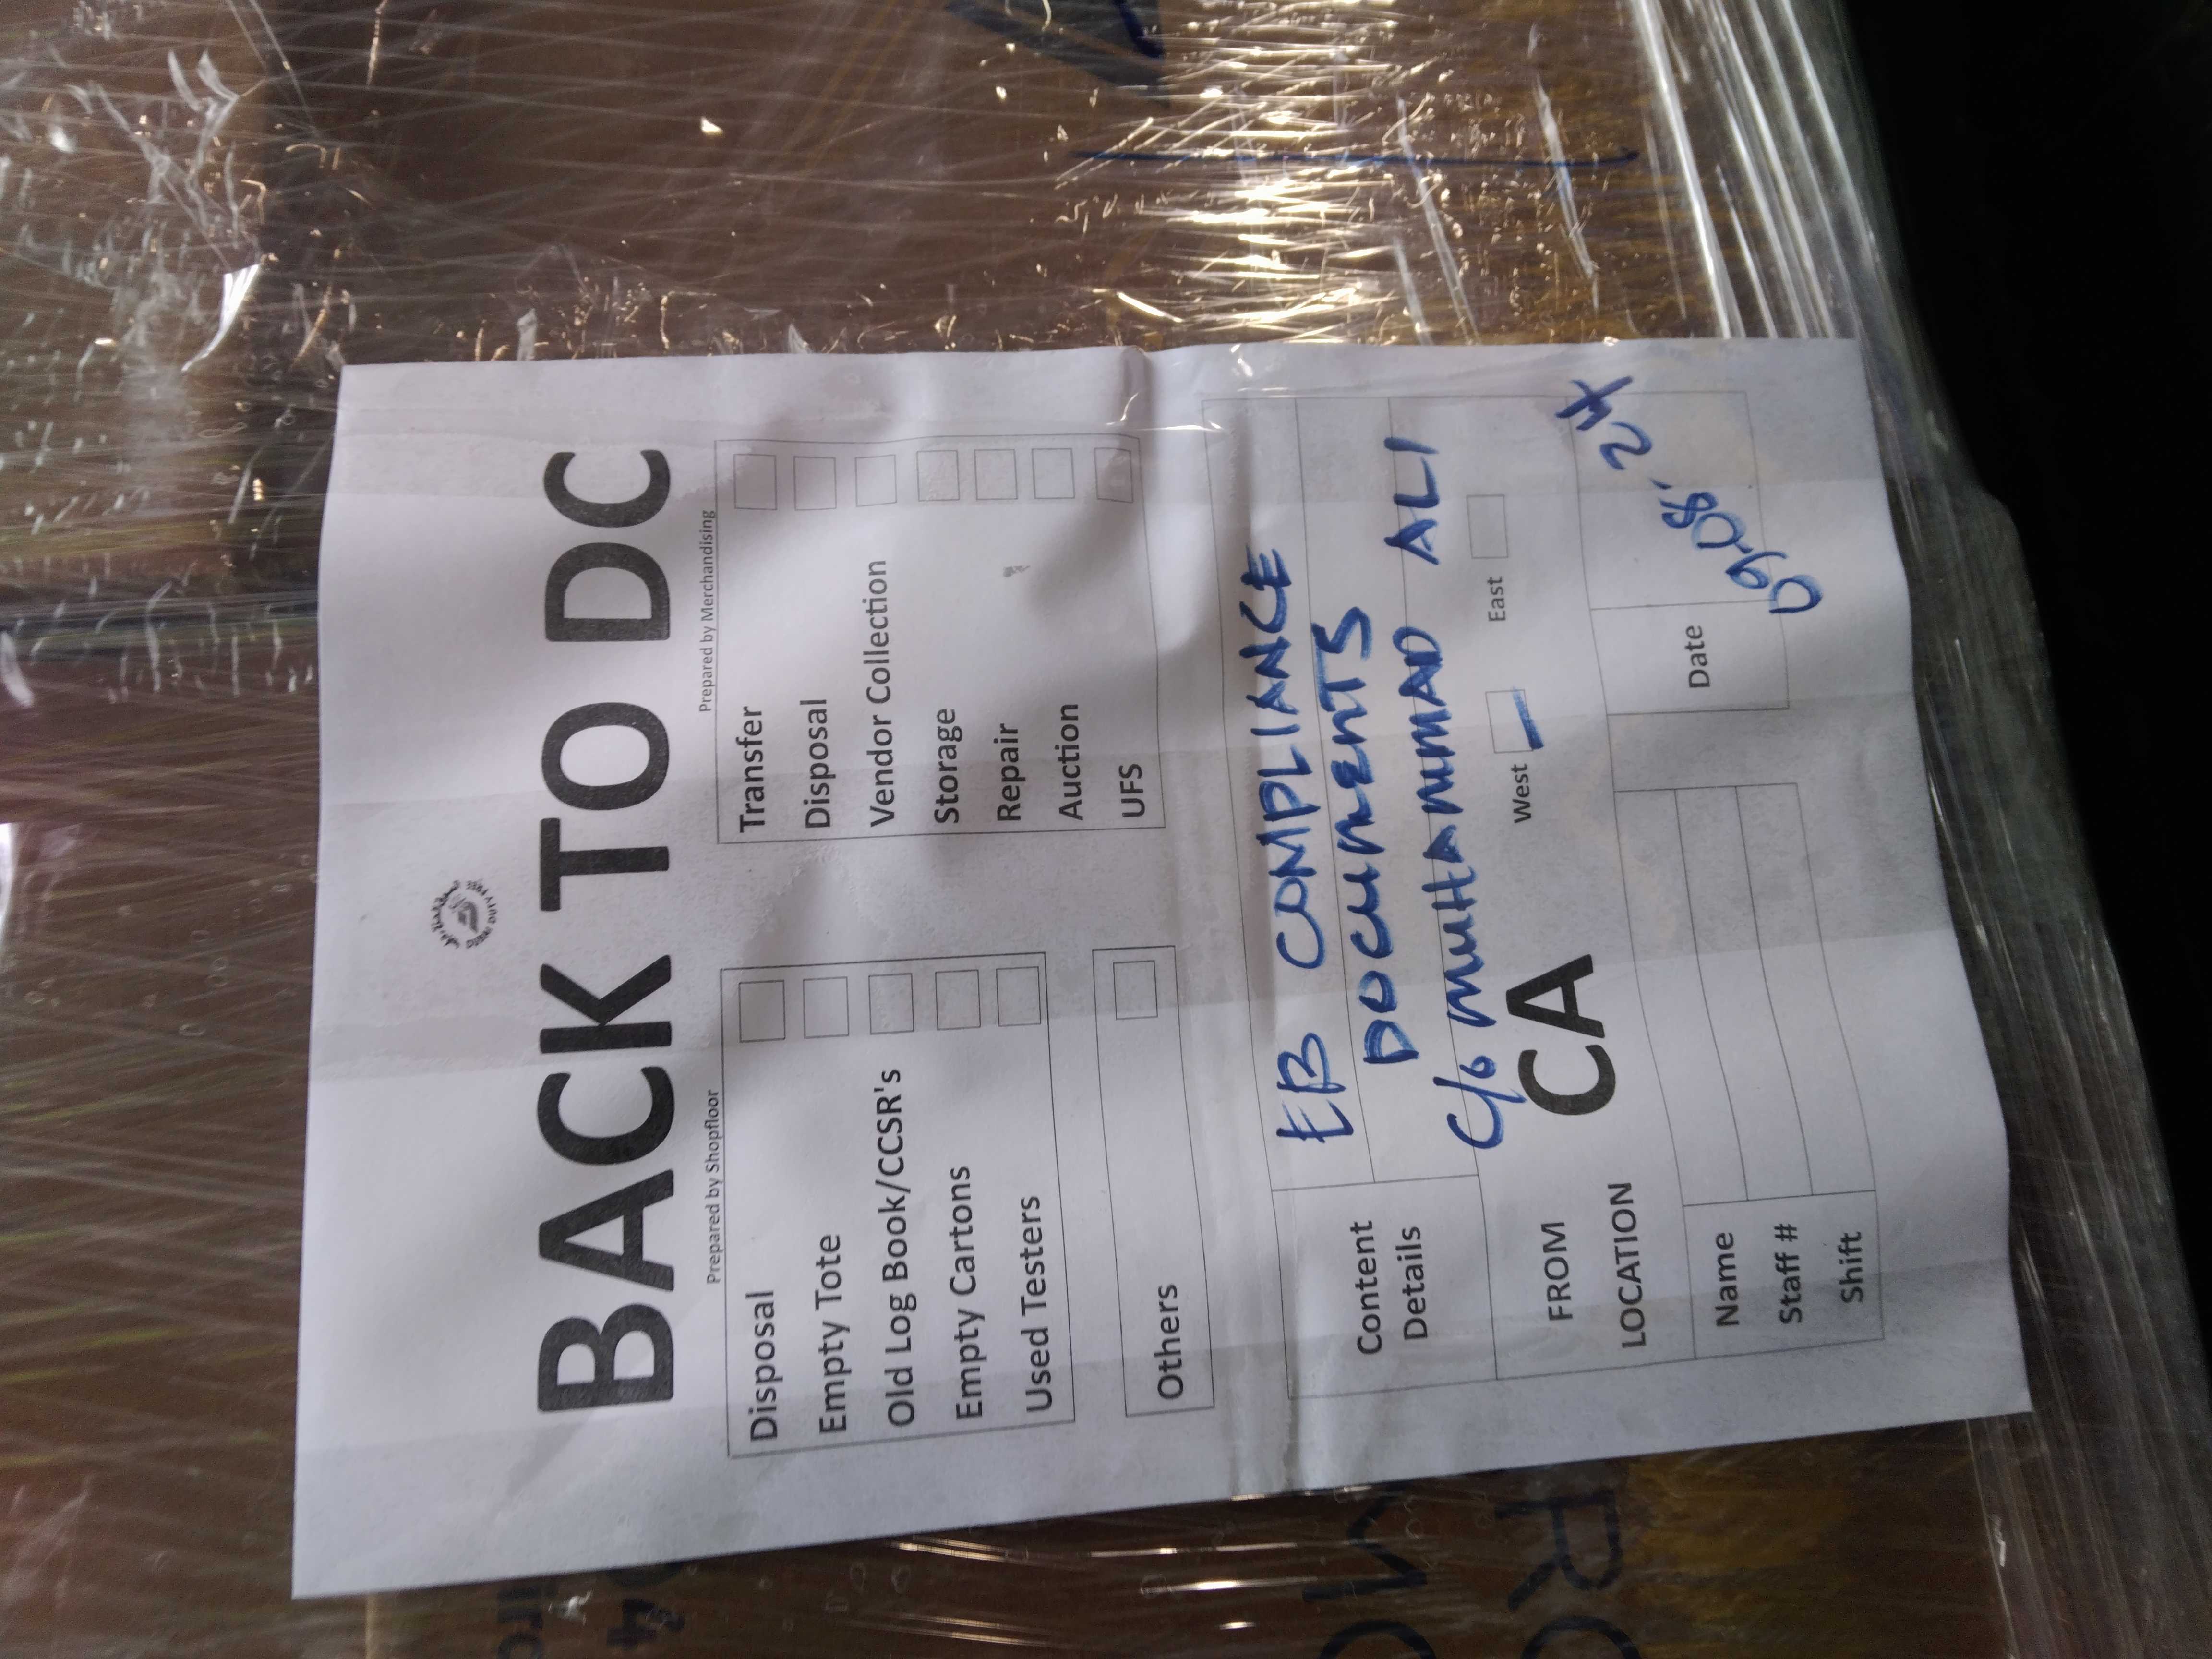 BACK TO DC
Prepared by Shopfloor
Prepared by Merchandising
Disposal
Empty Tote
Old Log Book/CCSR's
Empty Cartons
Used Testers
Others
Transfer
Disposal
Vendor Collection
Storage
Repair
Auction
UFS
Content
Details
EB COMPLIANCE
DOCUMENTS
C/o MUHAMMAD ALI
FROM
LOCATION
CA
West
East
Name
Staff #
Shift
Date
09.08.24